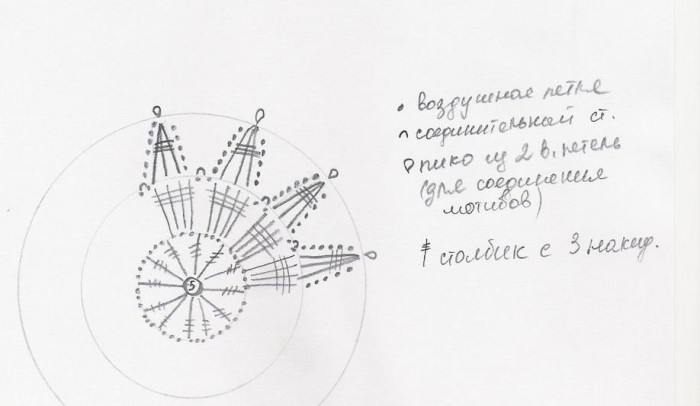 5
воздушная петля
соединительный ст.
пико из 2 в. петель
(для соединения
мотивов)
столбик с 3 накид.